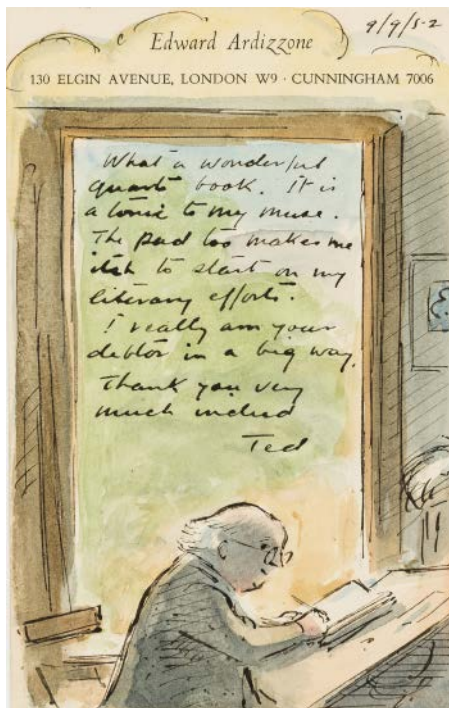 9/9/52
Edward Ardizzone
130 ELGIN AVENUE, LONDON W9 · CUNNINGHAM 7006
What a wonderful
quarto book. It is
a tonic to my muse.
The pad too makes me
itch to start on my
literary efforts.
I really am your
debtor in a big way.
Thank you very
much indeed
Ted
E.